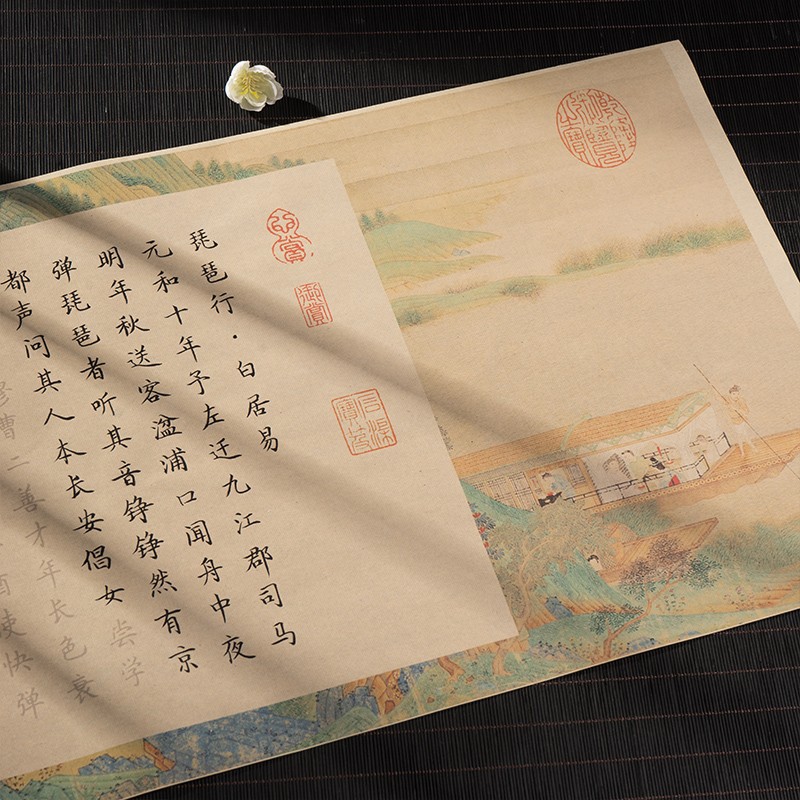 琵琶行·白居易
元和十年予左迁九江郡司马
明年秋送客湓浦口闻舟中夜
弹琵琶者听其音铮铮然有京
都声问其人本长安倡女尝学
穆曹二善才年长色衰
酒使快弹
御赏
石渠寶笈